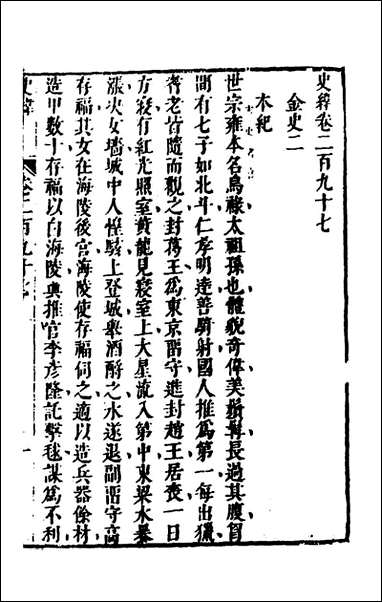 史緯卷二百九十七
金史二
本紀
世宗雍本名烏祿太祖孫也體貌奇偉美鬚髯長過其腹胷
間有七子如北斗仁孝明達善騎射國人推爲第一每出獵
耆老皆隨而觀之封葛王爲東京留守進封趙王居喪一日
方寢有紅光照室黃龍見寢室上大星流入第中東梁水暴
漲決女墻城中人惶駭上登城舉酒酹之水遂退副留守高
存福其女在海陵後宮海陵使存福伺之適以造兵器餘材
造甲數十存福以白海陵與推官李彥隆託擊毬謀爲不利
史緯
卷二百九十七